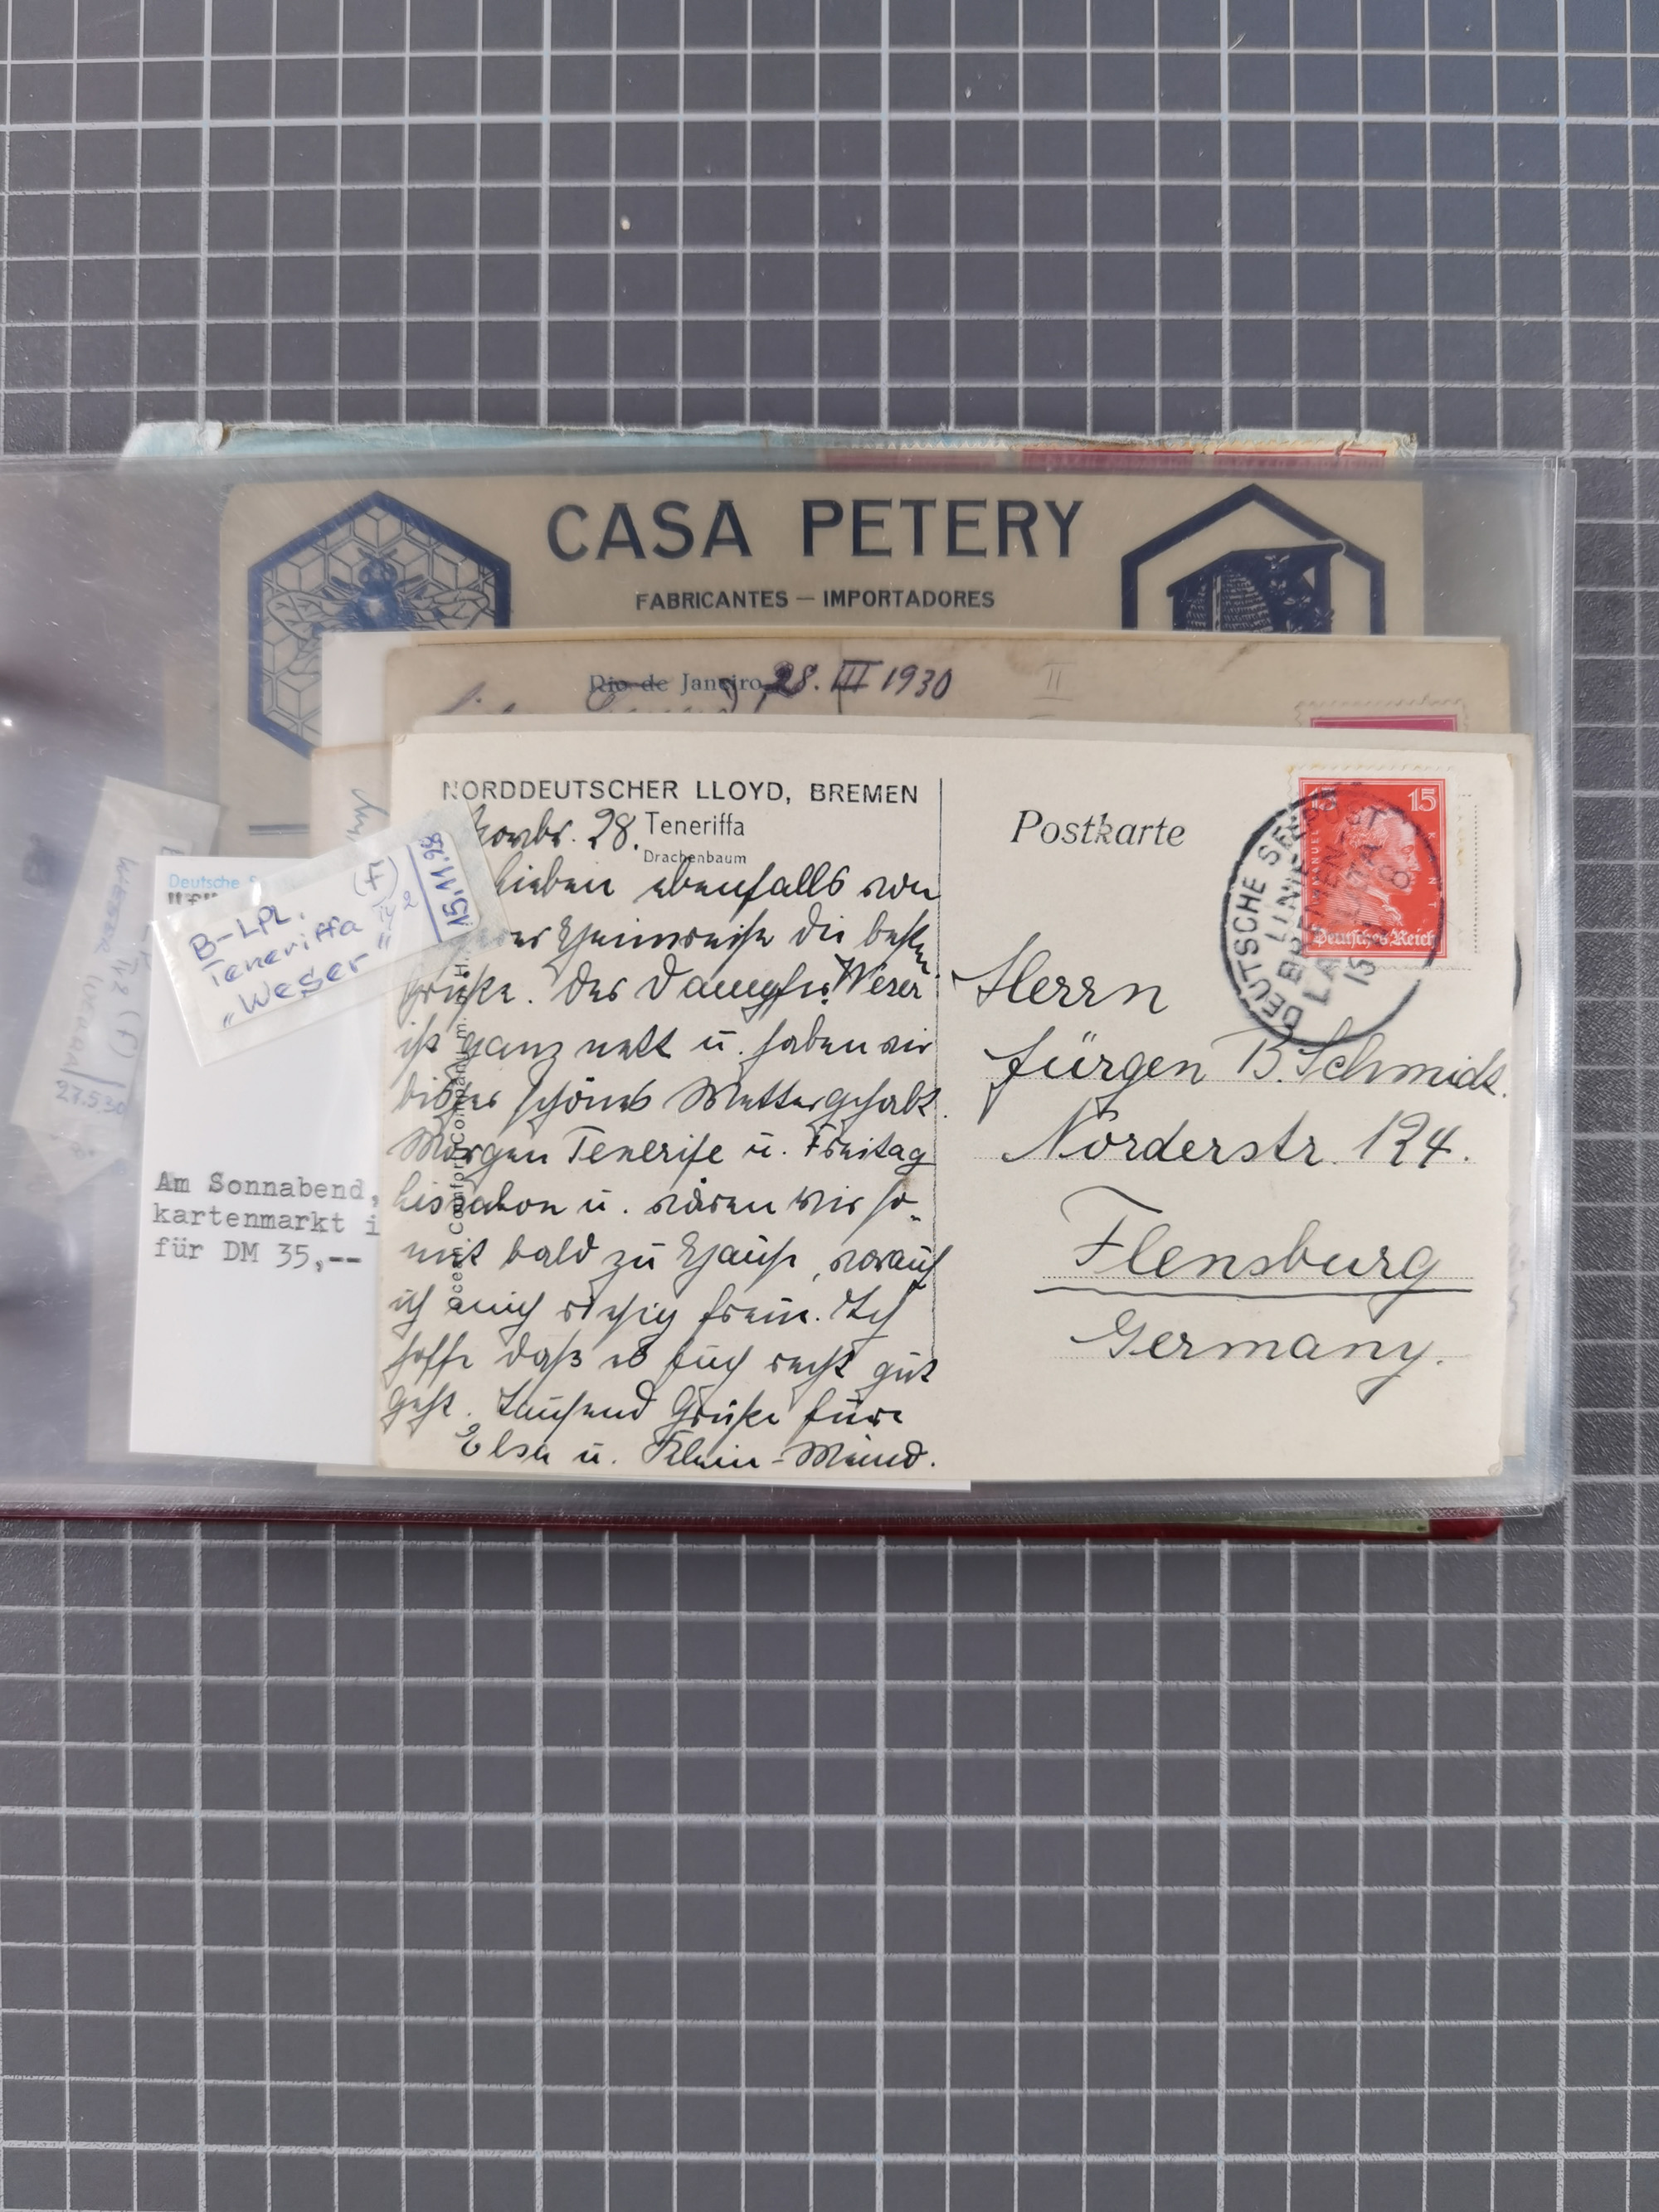 CASA PETERY
FABRICANTES — IMPORTADORES
Rio de Janeiro, 28. III 1930
II
NORDDEUTSCHER LLOYD, BREMEN
Novbr. 28.
Teneriffa
Drachenbaum
Lieben ebenfalls von
der Heimreise die besten
Grüße. Der Dampfer Weser
ist ganz nett u. haben wir
bisher schönes Wetter gehabt.
Morgen Tenerife u. Freitag
Lissabon u. wären wir so-
mit bald zu Hause, worauf
ich mich riesig freue. Ich
hoffe daß es Euch recht gut
geht. Tausend Grüße Eure
Elsa u. Klein-
Postkarte
15 15
Deutsches Reich
DEUTSCHE SEEPOST
LINIE
BREMEN-
LA PLATA
15
Herrn
Jürgen B. Schmidt.
Norderstr. 124.
Flensburg
Germany.
Deutsche
B-LPL.
Teneriffa
"Weser"
(f)
IV 2
15.11.28
27.5.30
Am Sonnabend,
kartenmarkt i
für DM 35,--